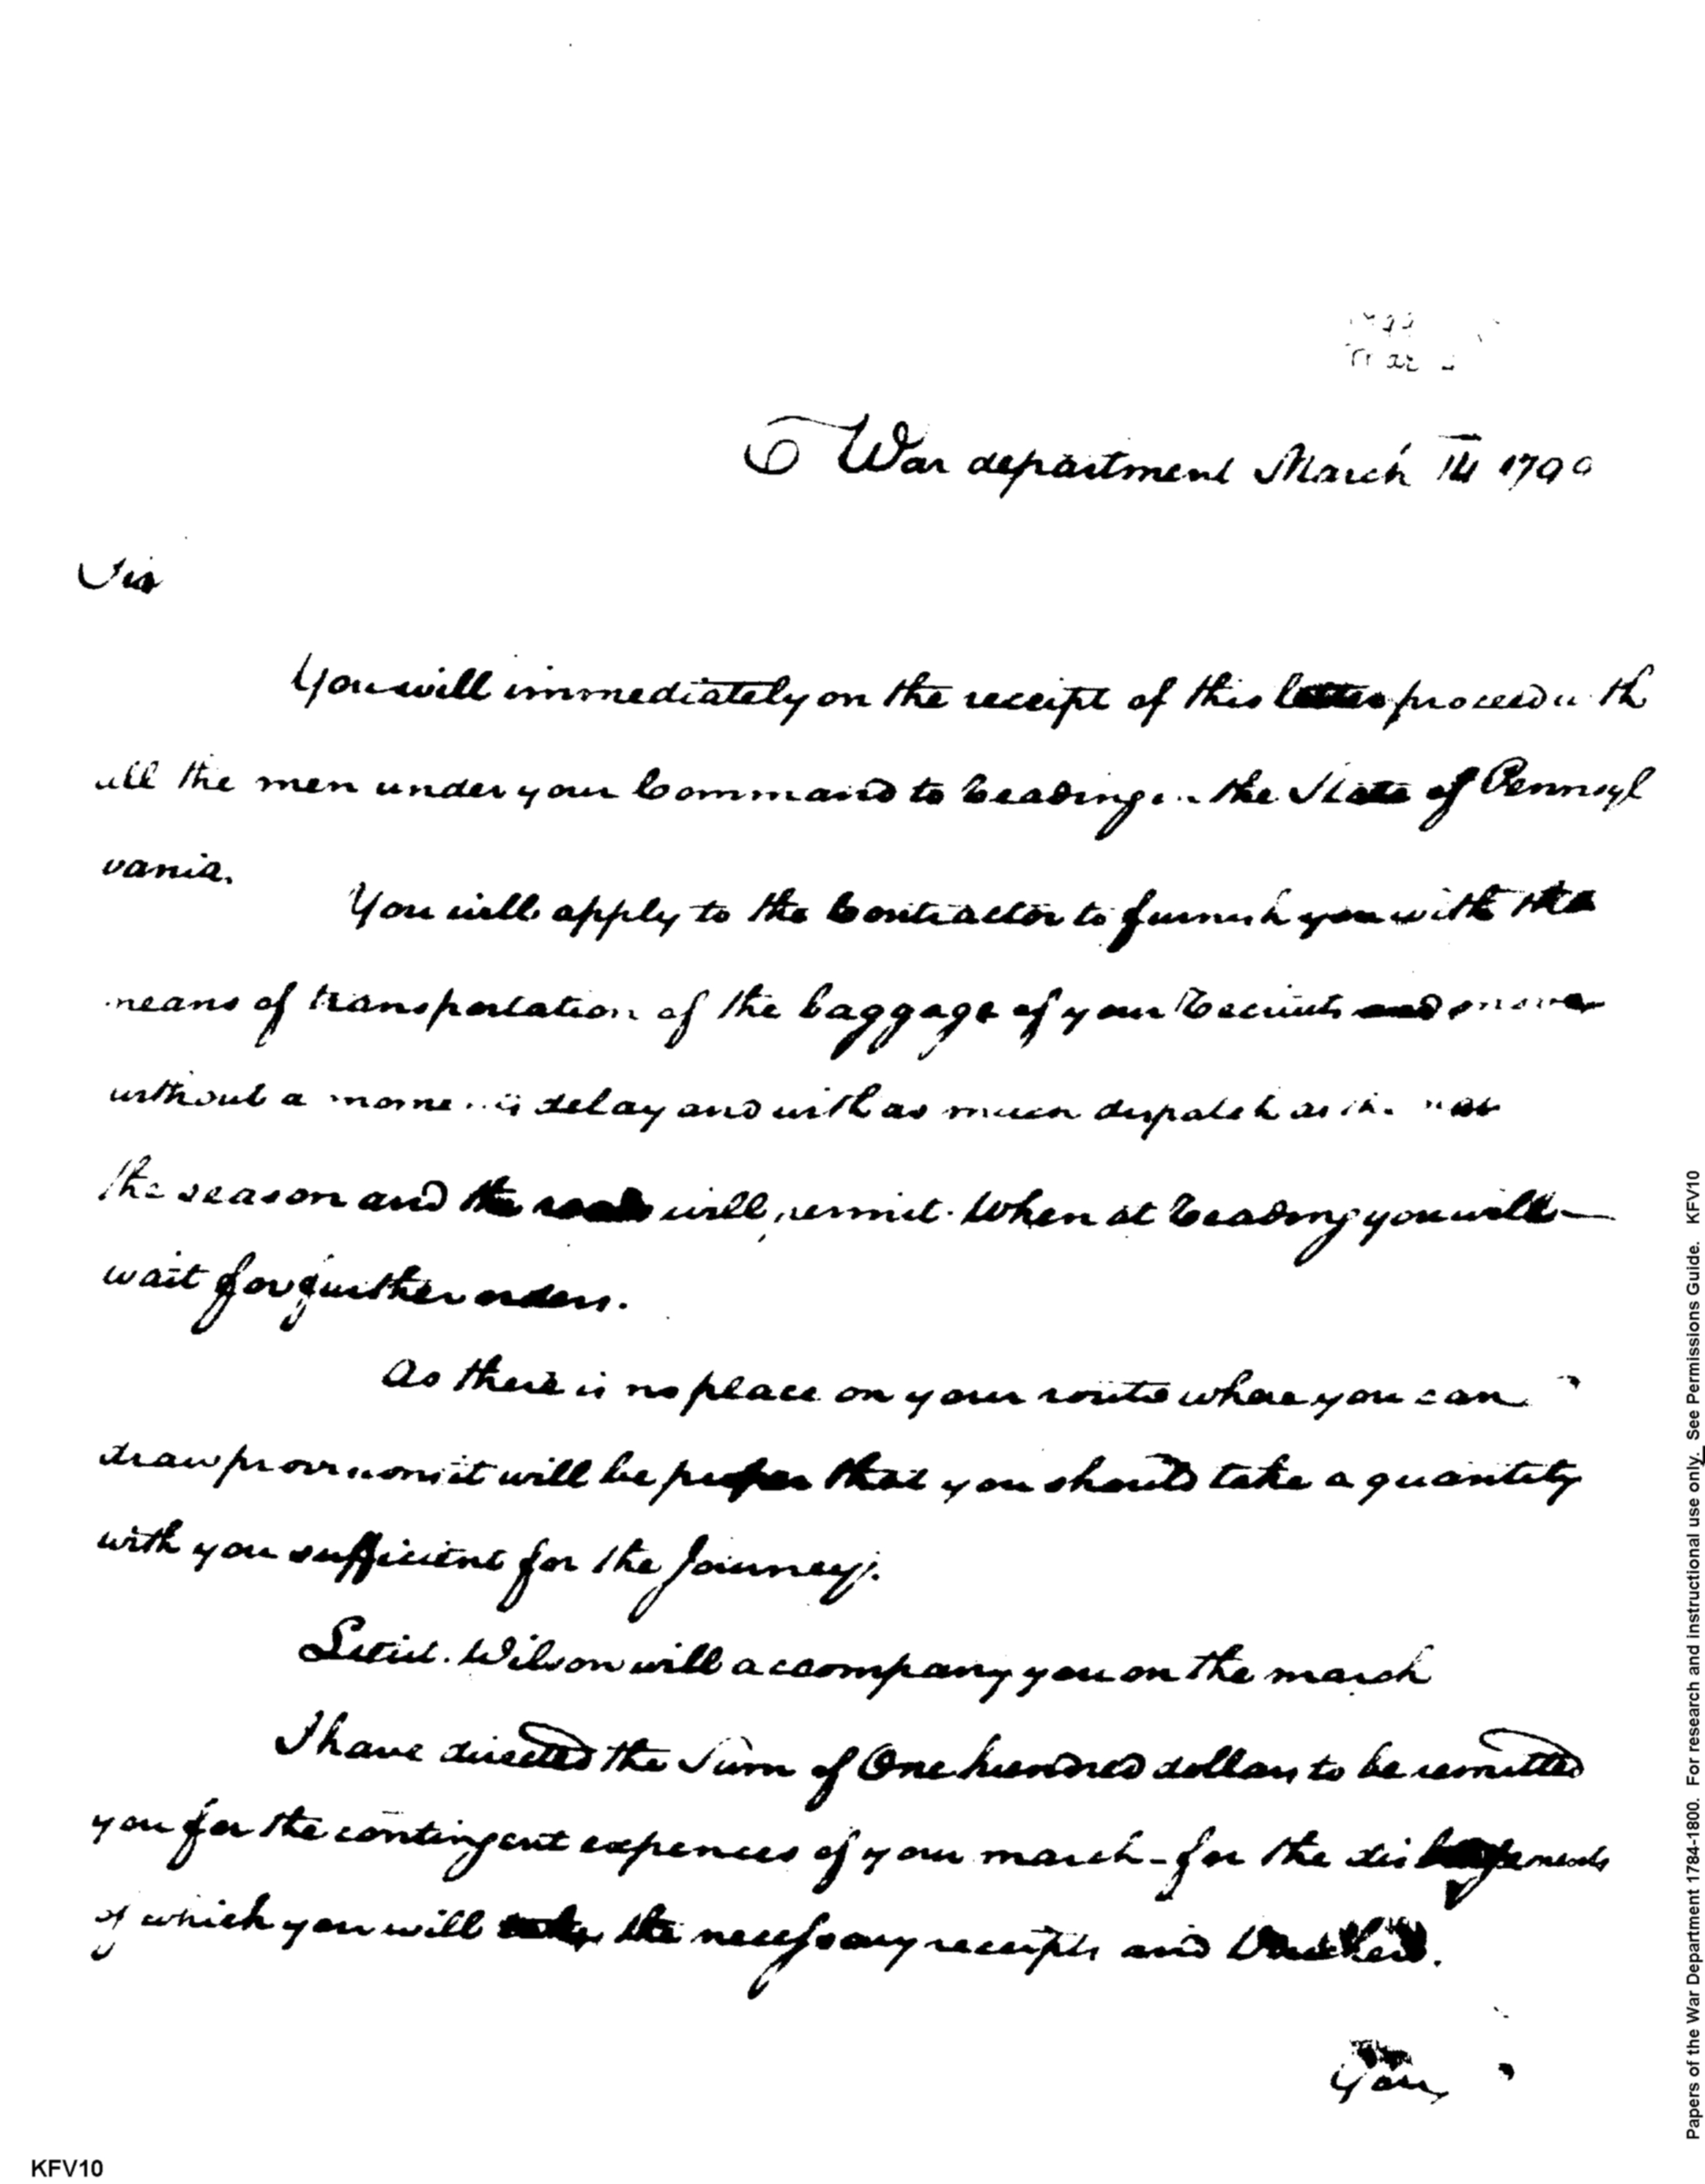 War department March 14 179
Sir
You will immediately on the receipt of this letter proceed with
all the men under your Command to Reading in the State of Pennsyl
vania.
You will apply to the Contractor to furnish you with the
means of transportation of the baggage of your Recruits and move
without a moments delay and with as much dispatch as
the season and the roads will permit. When at Reading you will
wait for further orders.
As there is no place on your route where you can
draw provisions it will be proper that you should take a quantity
with you sufficient for the Journey.
Lieut. Wilson will accompany you on the march
I have directed the Sum of One hundred dollars to be remitted
you for the contingent expences of your march - for the disbursements
of which you will take the necessary receipts and Vouchers.
KFV10
Papers of the War Department 1784-1800. For research and instructional use only. See Permissions Guide. KFV10